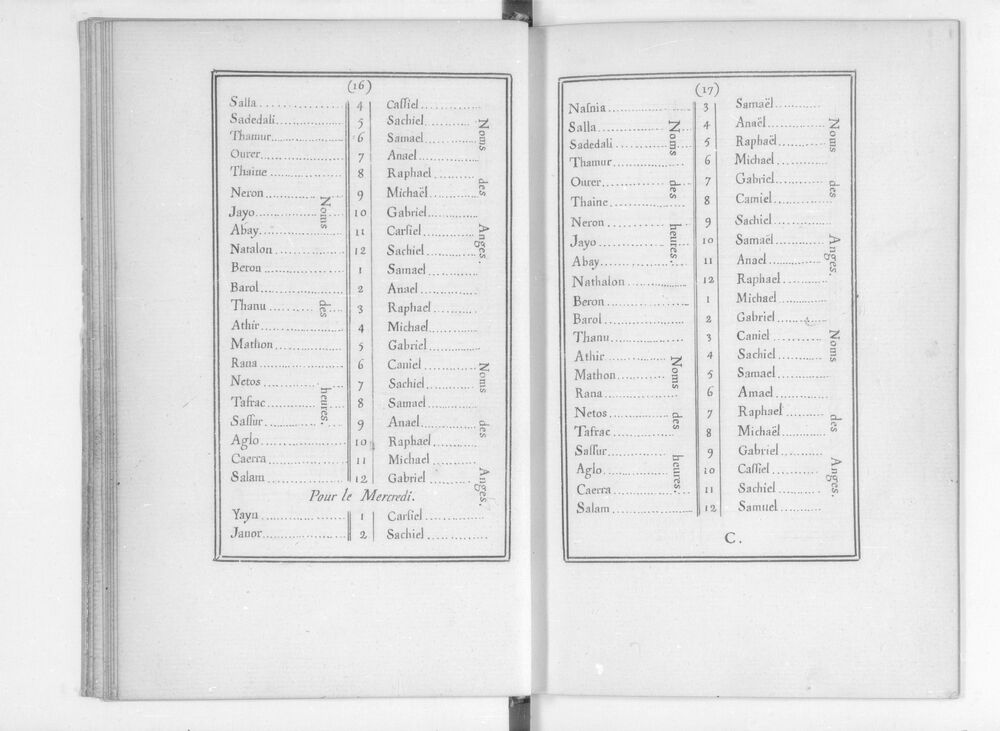 (16)
Salla 4 Cassiel
Sadedali 5 Sachiel
Thamur 6 Samael
Ourer 7 Anael
Thaine 8 Raphael
Neron 9 Michaël
Jayo 10 Gabriel
Abay 11 Carsiel
Natalon 12 Sachiel
Beron 1 Samael
Barol 2 Anael
Thanu 3 Raphael
Athir 4 Michael
Mathon 5 Gabriel
Rana 6 Caniel
Netos 7 Sachiel
Tafrac 8 Samael
Sassur 9 Anael
Aglo 10 Raphael
Caerra 11 Michael
Salam 12 Gabriel
Noms des heures.
Noms des Anges.
Noms des Anges.
Pour le Mercredi.
Yayn 1 Carsiel
Janor 2 Sachiel
(17)
Nasnia 3 Samaël
Salla 4 Anaël
Sadedali 5 Raphaël
Thamur 6 Michael
Ourer 7 Gabriel
Thaine 8 Camiel
Neron 9 Sachiel
Jayo 10 Samaël
Abay 11 Anael
Nathalon 12 Raphael
Beron 1 Michael
Barol 2 Gabriel
Thanu 3 Caniel
Athir 4 Sachiel
Mathon 5 Samael
Rana 6 Amael
Netos 7 Raphael
Tafrac 8 Michaël
Sassur 9 Gabriel
Aglo 10 Cassiel
Caerra 11 Sachiel
Salam 12 Samuel
Noms des heures.
Noms des heures.
Noms des Anges.
Noms des Anges.
C.